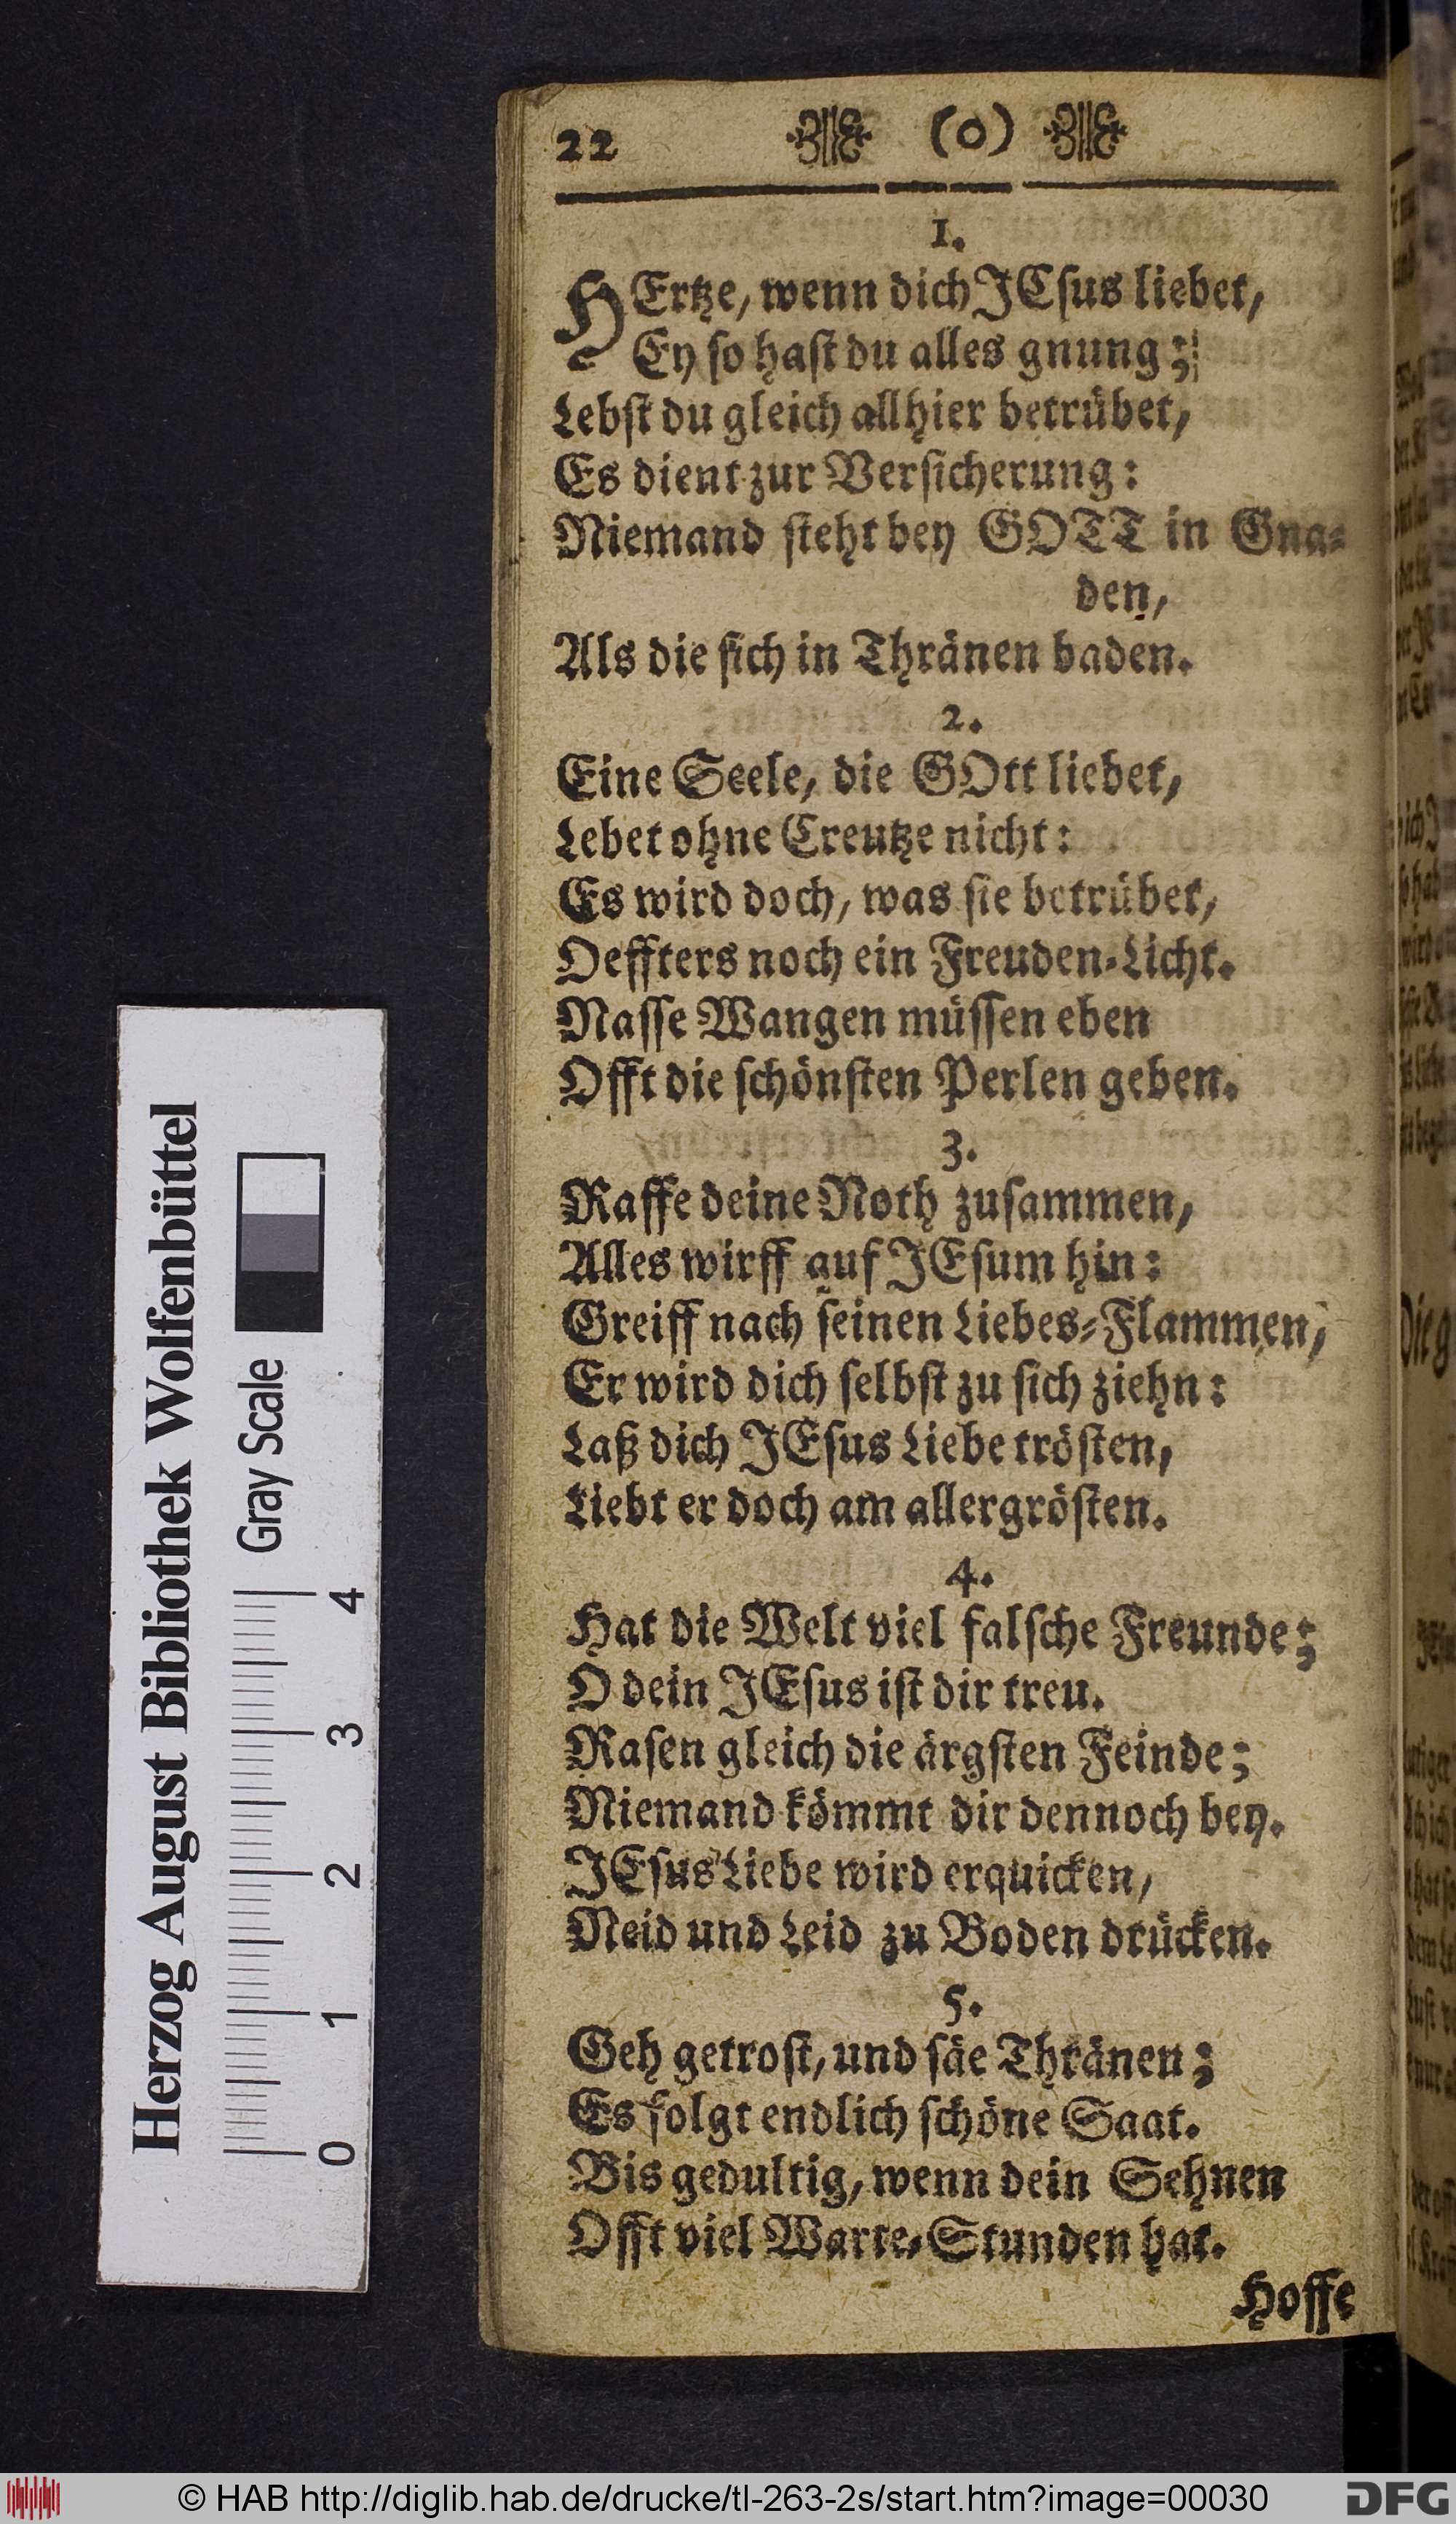 22 (o)
1.
HErtze, wenn dich JEsus liebet,
Ey so hast du alles gnung;
Lebst du gleich allhier betrübet,
Es dient zur Versicherung:
Niemand steht bey GOTT in Gna-
den,
Als die sich in Thränen baden.
2.
Eine Seele, die GOtt liebet,
Lebet ohne Creutze nicht:
Es wird doch, was sie betrübet,
Oeffters noch ein Freuden-Licht.
Nasse Wangen müssen eben
Offt die schönsten Perlen geben.
3.
Raffe deine Noth zusammen,
Alles wirff auf JEsum hin:
Greiff nach seinen Liebes-Flammen,
Er wird dich selbst zu sich ziehn:
Laß dich JEsus Liebe trösten,
Liebt er doch am allergrösten.
4.
Hat die Welt viel falsche Freunde;
O dein JEsus ist dir treu.
Rasen gleich die ärgsten Feinde;
Niemand kömmt dir dennoch bey.
JEsus Liebe wird erquicken,
Neid und Leid zu Boden drücken.
5.
Geh getrost, und säe Thränen;
Es folgt endlich schöne Saat.
Bis gedultig, wenn dein Sehnen
Offt viel Warte-Stunden hat.
Hoffe
Herzog August Bibliothek Wolfenbüttel
Gray Scale
0 1 2 3 4
© HAB http://diglib.hab.de/drucke/tl-263-2s/start.htm?image=00030
DFG